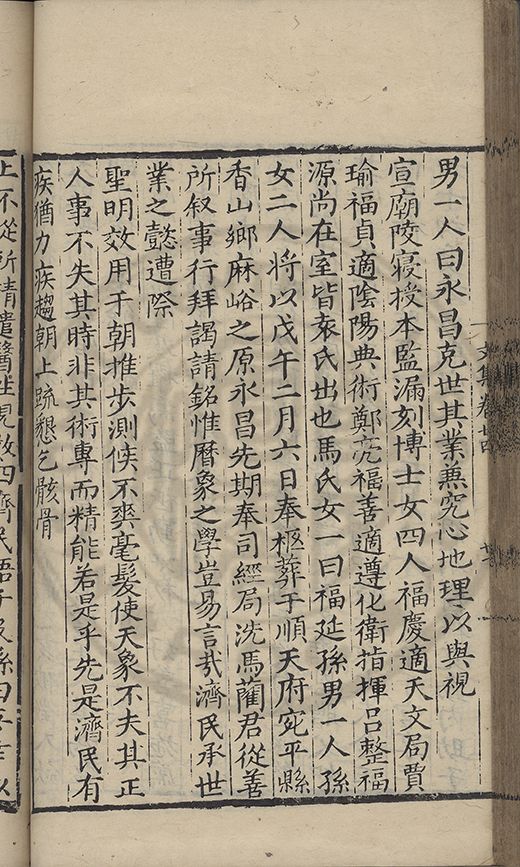 男一人曰永昌克世其業兼究心地理以與視
宣廟陵寢授本監漏刻博士女四人福慶適天文局賈
瑜福貞適陰陽典術鄭亮福善適遵化衛指揮呂整福
源尚在室皆袁氏出也馬氏女一曰福延孫男一人孫
女二人將以戊午二月六日奉柩葬于順天府宛平縣
香山鄉麻峪之原永昌先期奉司經局洗馬藺君從善
所叙事行拜謁請銘惟曆象之學豈易言㢤濟民承世
業之懿遭際
聖明效用于朝推步測候不爽毫髮使天象不失其正
人事不失其時非其術專而精能若是乎先是濟民有
疾猶力疾趨朝上䟽懇乞骸骨
文集卷廿四
上不從所請遣醫